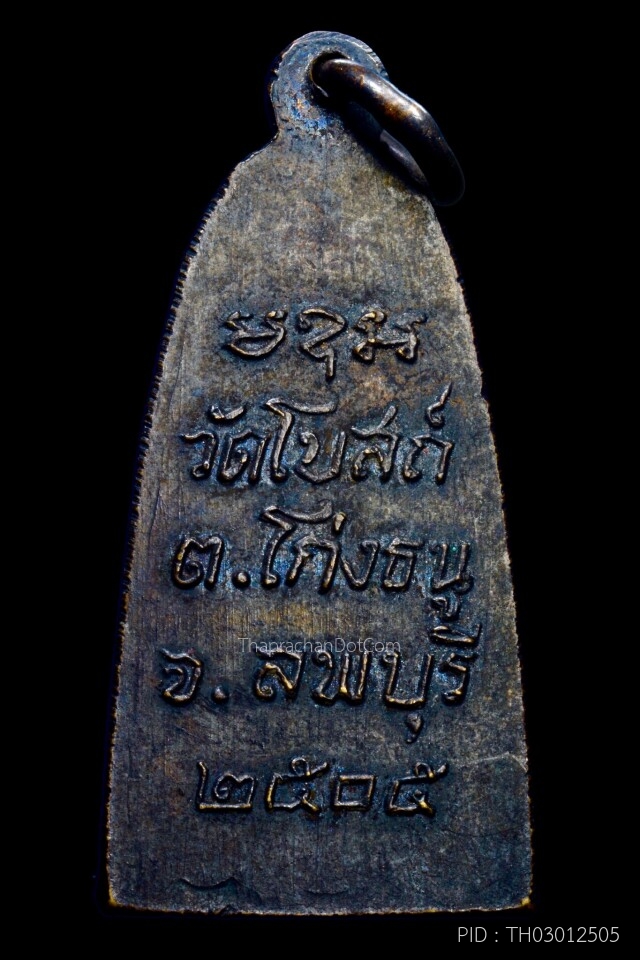 วัดโบสถ์
ต.โก่งธนู
ThaprachanDotCom
จ.ลพบุรี
๒๕๐๕
PID : TH03012505